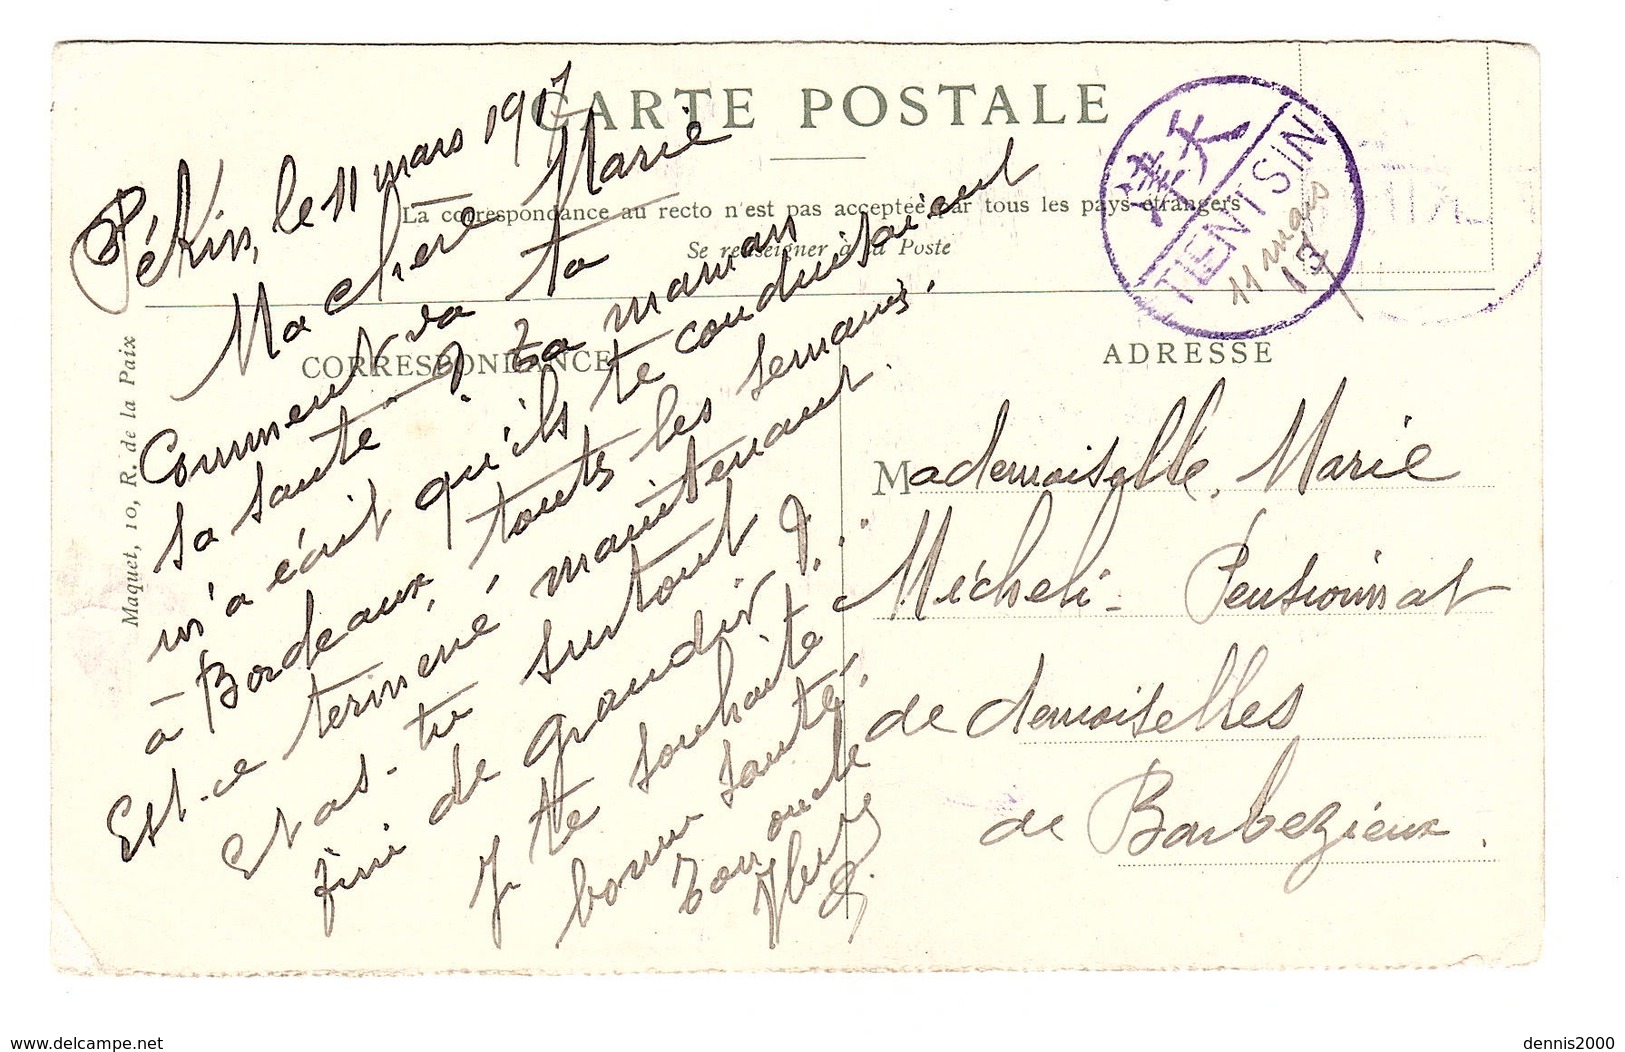 CARTE POSTALE
La correspondance au recto n'est pas acceptée par tous les pays étrangers
Se renseigner à la Poste
CORRESPONDANCE
ADRESSE
Maquet, 10, R. de la Paix
天津
TIENTSIN
11 mars
17
Pékin, le 11 mars 1917
Ma chère Marie
Comment va ta
sa santé ? Ta maman
m'a écrit qu'ils te conduisaient
à Bordeaux, toutes les semaines.
Est-ce terminé, maintenant.
Et as-tu surtout
fini de grandir ?...
Je te souhaite
bonne santé,
Ton oncle
Mademoiselle. Marie
Micheli - Pensionnat
de demoiselles
de Barbezieux.
www.delcampe.net
dennis2000